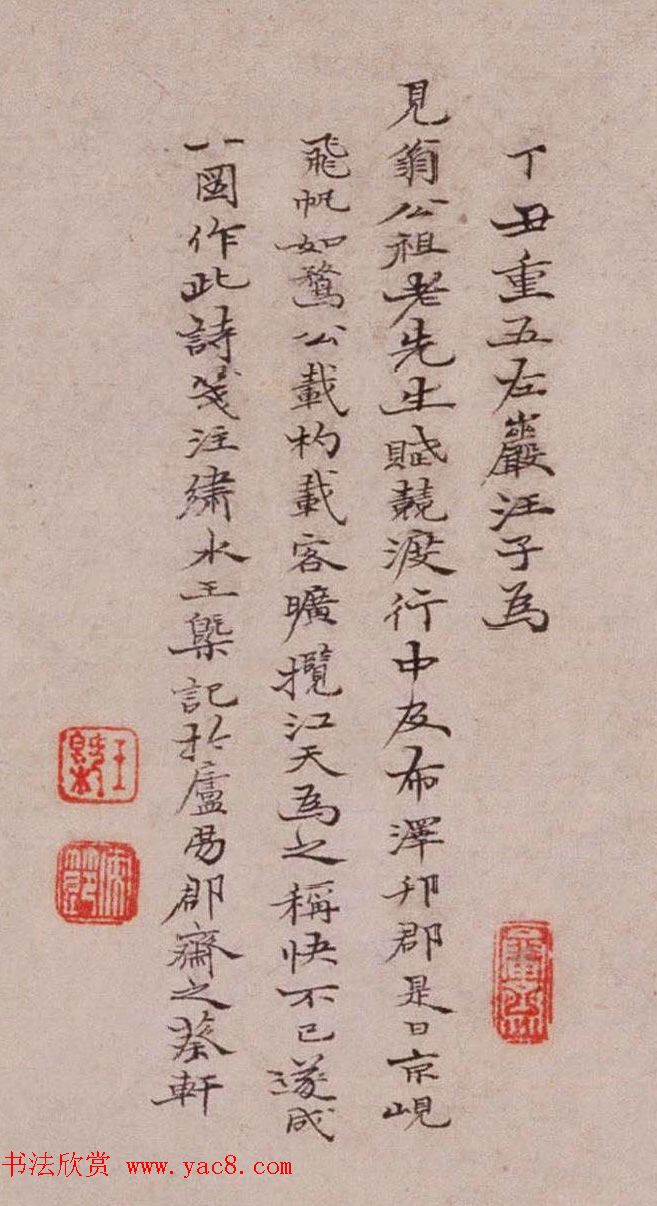 丁丑重五左巖汪子為
見翁公祖老先生賦競渡行中及布澤邗郡是日京峴
飛帆如鶩公載杓載客曠攬江天為之稱快不已遂成
一圖作此詩箋注繡水王槩記於廬昜郡齋之葵軒
王槩
书法欣赏 www.yac8.com